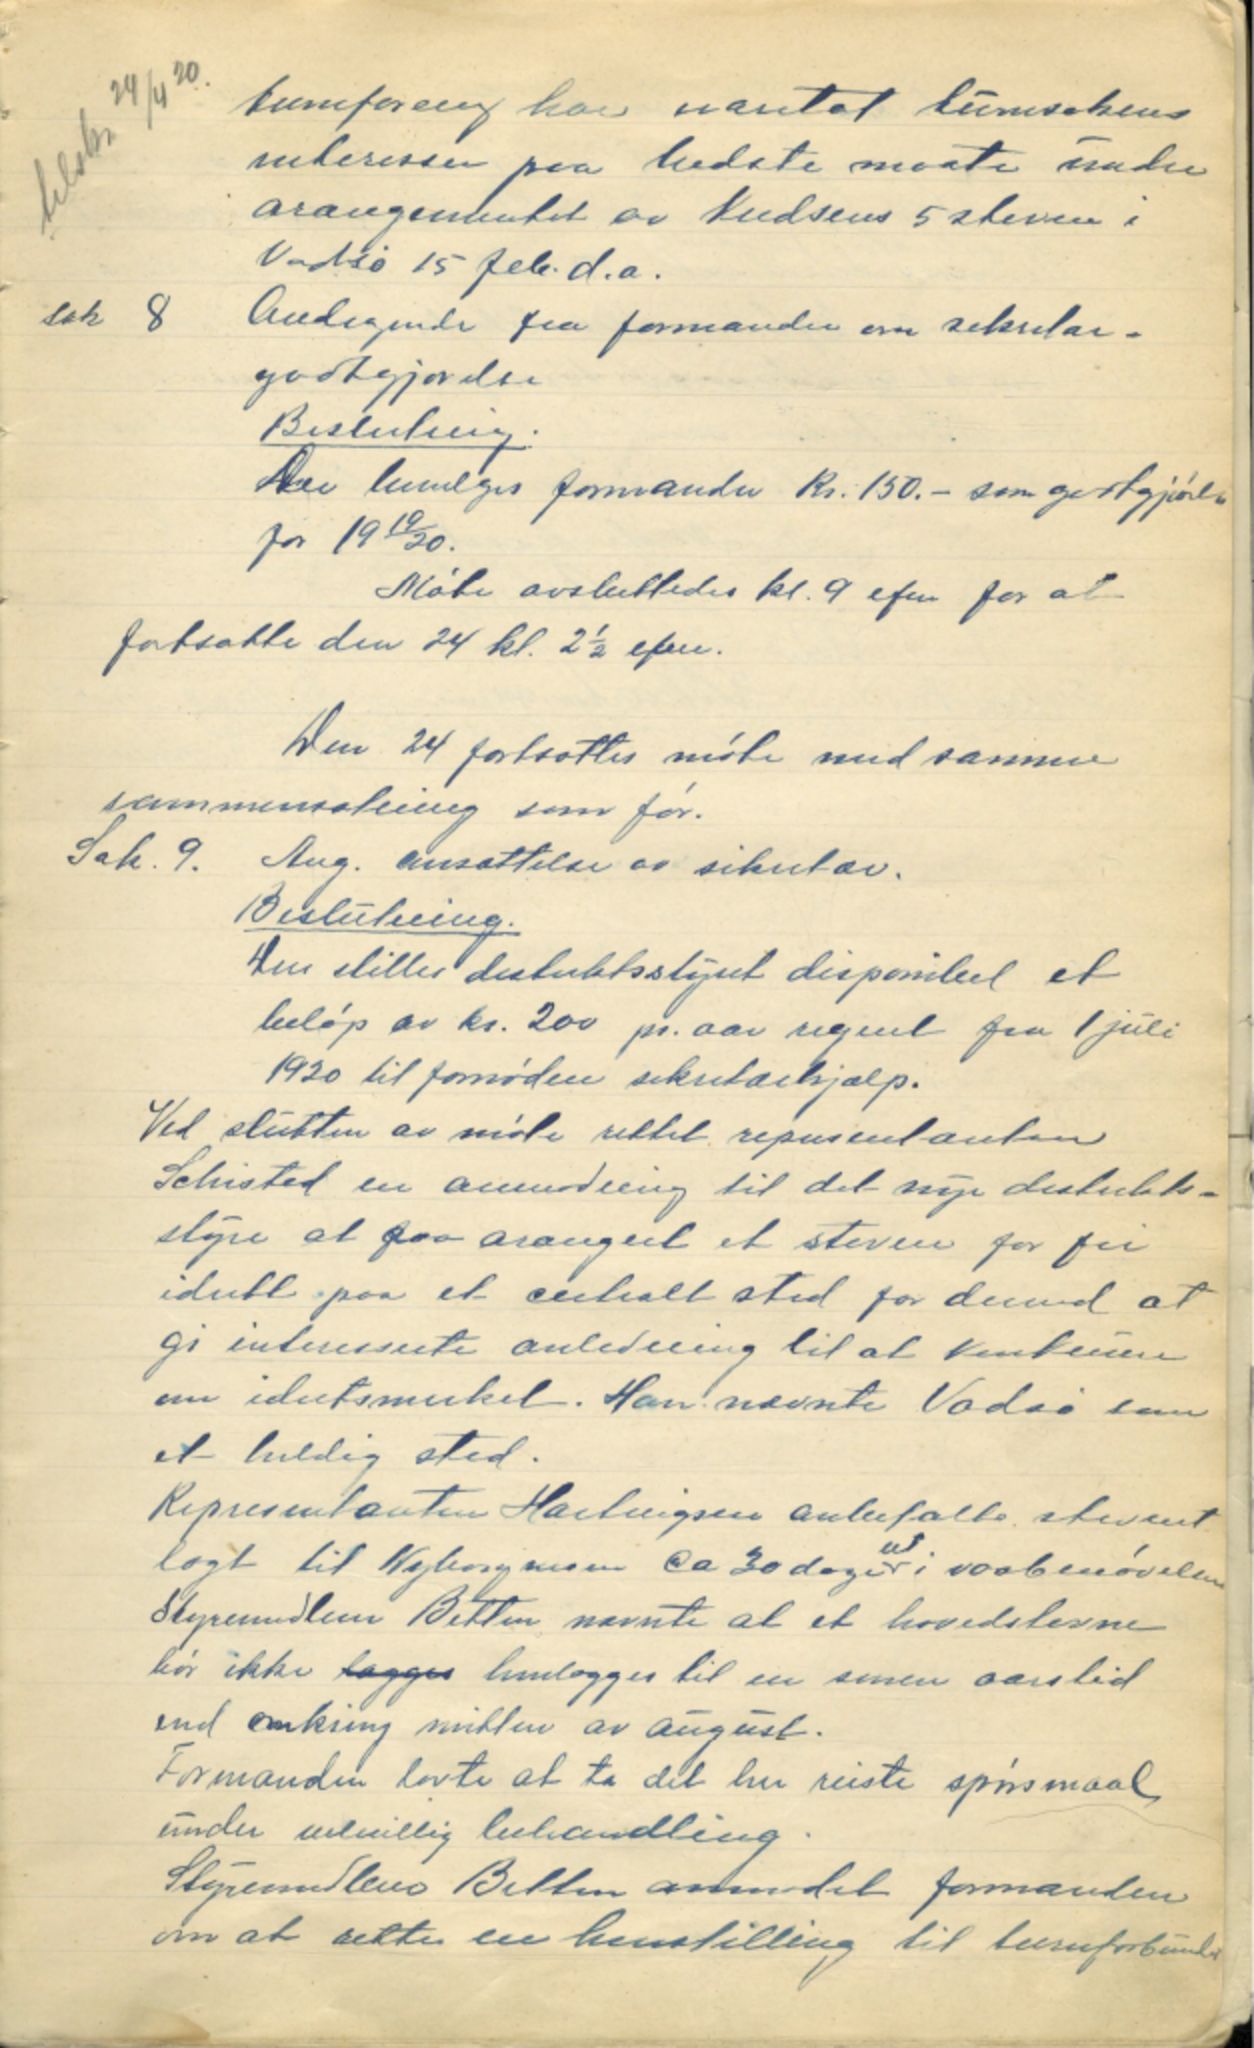 24/4 20.
turnforening har varetat turnsakens
interesser paa bedste maate under
arangementet av Knudsens 5 stevne i
Vadsö 15 feb. d.a.
sak 8 Andragende fra formanden om sekretær-
godtgjørelse
Beslutning.
Der bevilges formanden kr. 150.- som godtgjörelse
for 19 19/20.
Möte avsluttedes kl. 9 efm for at
fortsætte den 24 kl. 2½ efm.
Den 24 fortsattes möte med samme
sammensætning som för.
Sak. 9. Ang. ansættelse av sekretær.
Beslutning.
Der stilles destriktsstyret disponibel et
belöp av kr. 200 pr. aar regnet fra 1 juli
1920 til fornöden sekretærhjælp.
Ved slutten av möte rettet representanten
Schisted en anmodning til det nye destrikts-
styre at faa arangert et stevne for fri
idrett paa et centralt sted for derved at
gi interesserte anledning til at konkurere
om idretsmerket. Han nævnte Vadsö som
et heldig sted.
Representanten Hartvigsen anbefalte stevnet
lagt til Nyborgmoen ca 30 dager ut i vaabenövelsen
Styremedlem Betten nævnte at et hovedstevne
bör ikke lægges henlægges til en senere aarstid
end omkring mitten av august.
Formanden lovte at ta det her reiste spörsmaal
under velvillig behandling.
Styremedlem Betten anmodet formanden
om at rette en henstilling til turnforbundet